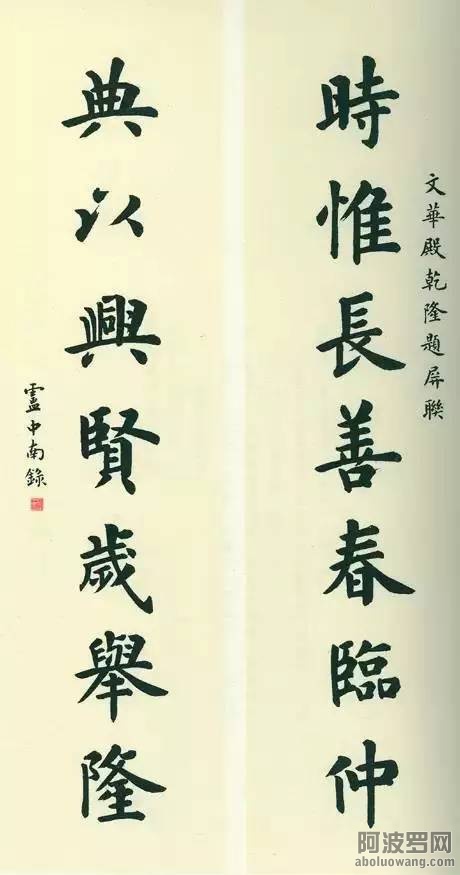 文華殿乾隆題屏聯
時惟長善春臨仲
典以興賢歲舉隆
盧中南錄
阿波罗网
aboluowang.com